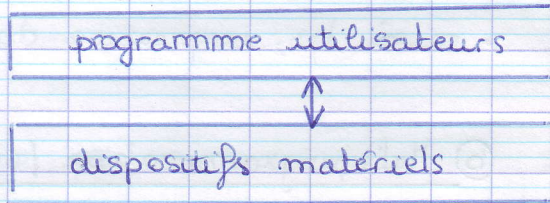 programme utilisateurs
dispositifs matériels